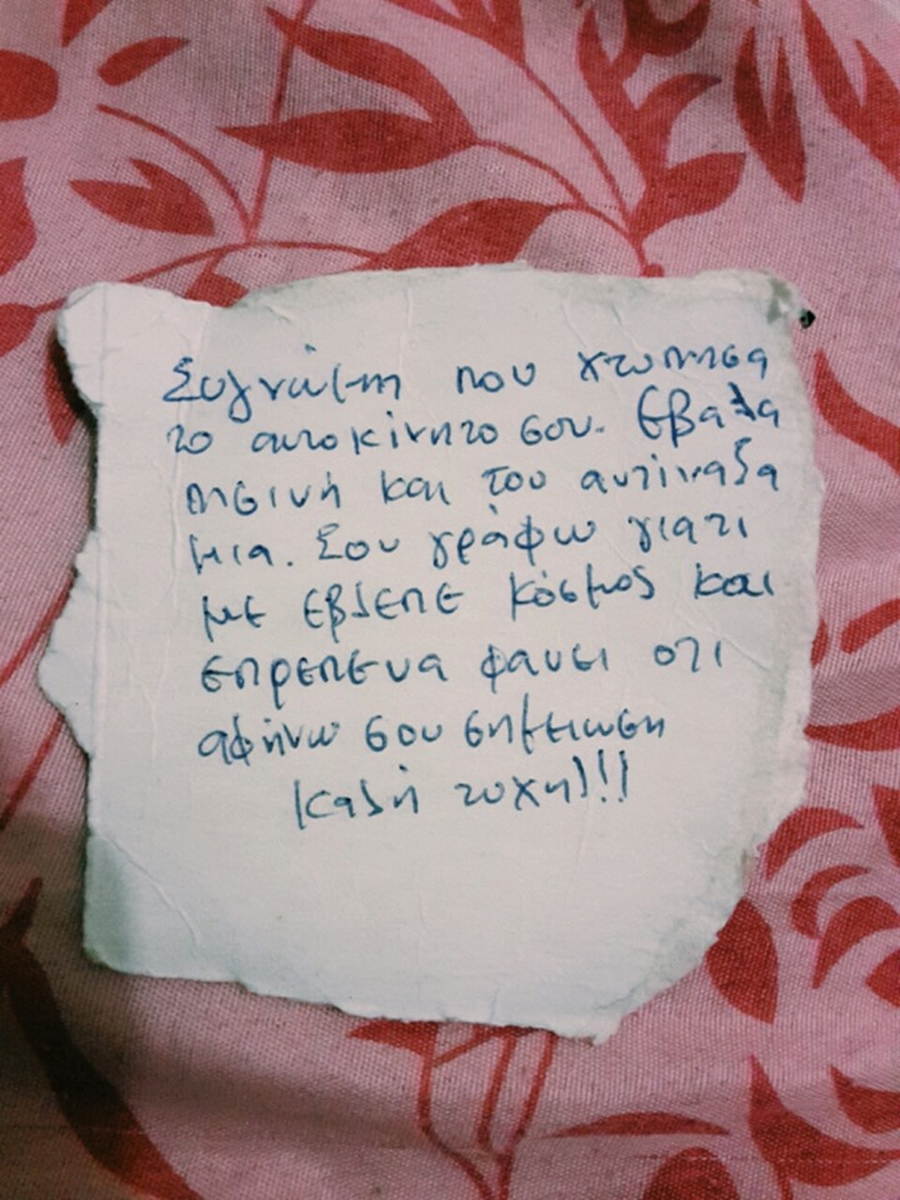 Συγνώμη που χτυπησα
το αυτοκίνητο σου. Εβαλα
πισινή και του αυτίναξα
μια. Σου γράφω γιατι
με εβλεπε κόσμος και
επρεπε να φανει οτι
αφήνω σου σημειωση
Καλή τυχη!!!